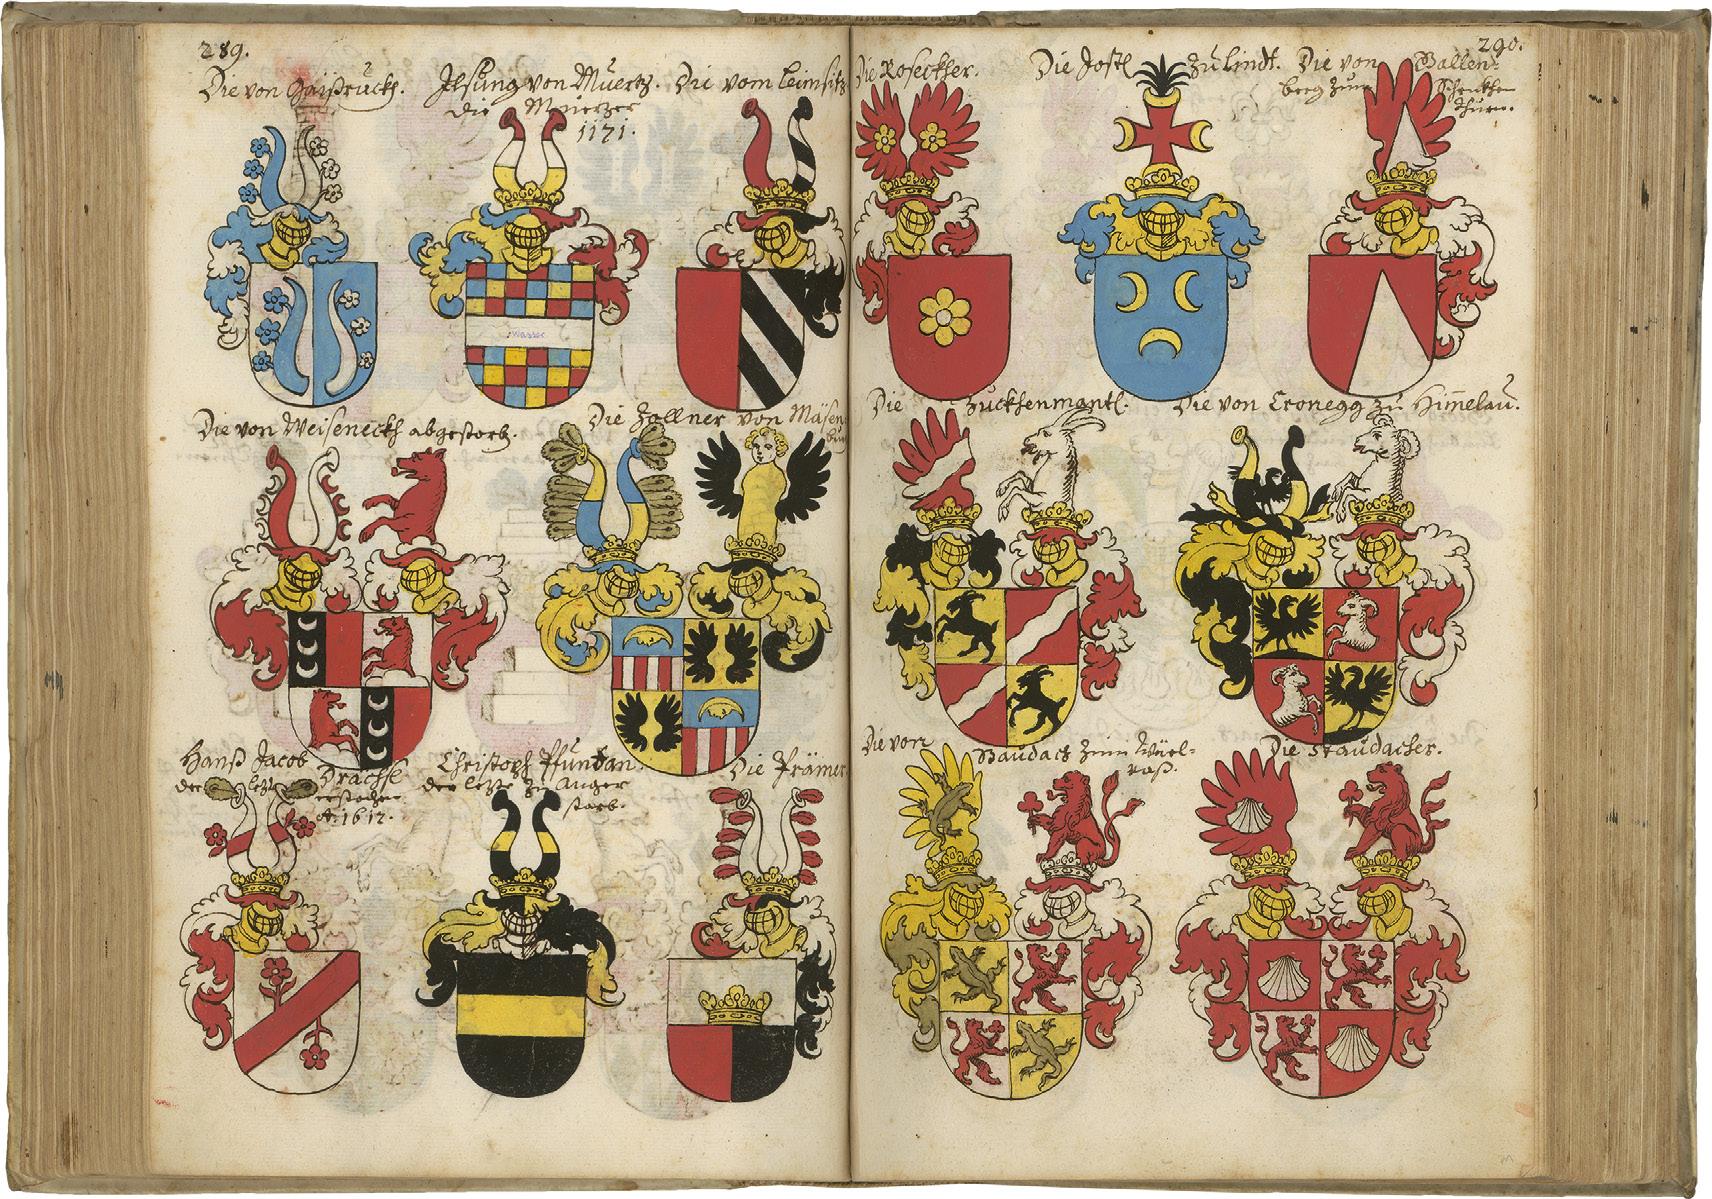 289.
Die von Gaißruckh.
Ilsung von Muertz.
die Muertzer
1171.
Die vom Leimsitz
wasser
Die von Weiseneckh abgestorb.
Die Zollner von Mäsen
burg
Hanß Jacob
Drachsl
der letzt
A: 1612.
Christoph Pfuntan
der letzte zu Anger
starb.
Die Prämer
290.
Die Roseckher.
Die Jostl zu Lindt.
Die von Wallen
berg zum Schenkhen
thurn.
Die Zückhenmantl.
Die von Cronegg zu Himelau.
Die von Staudach zum
Die Staudacher.